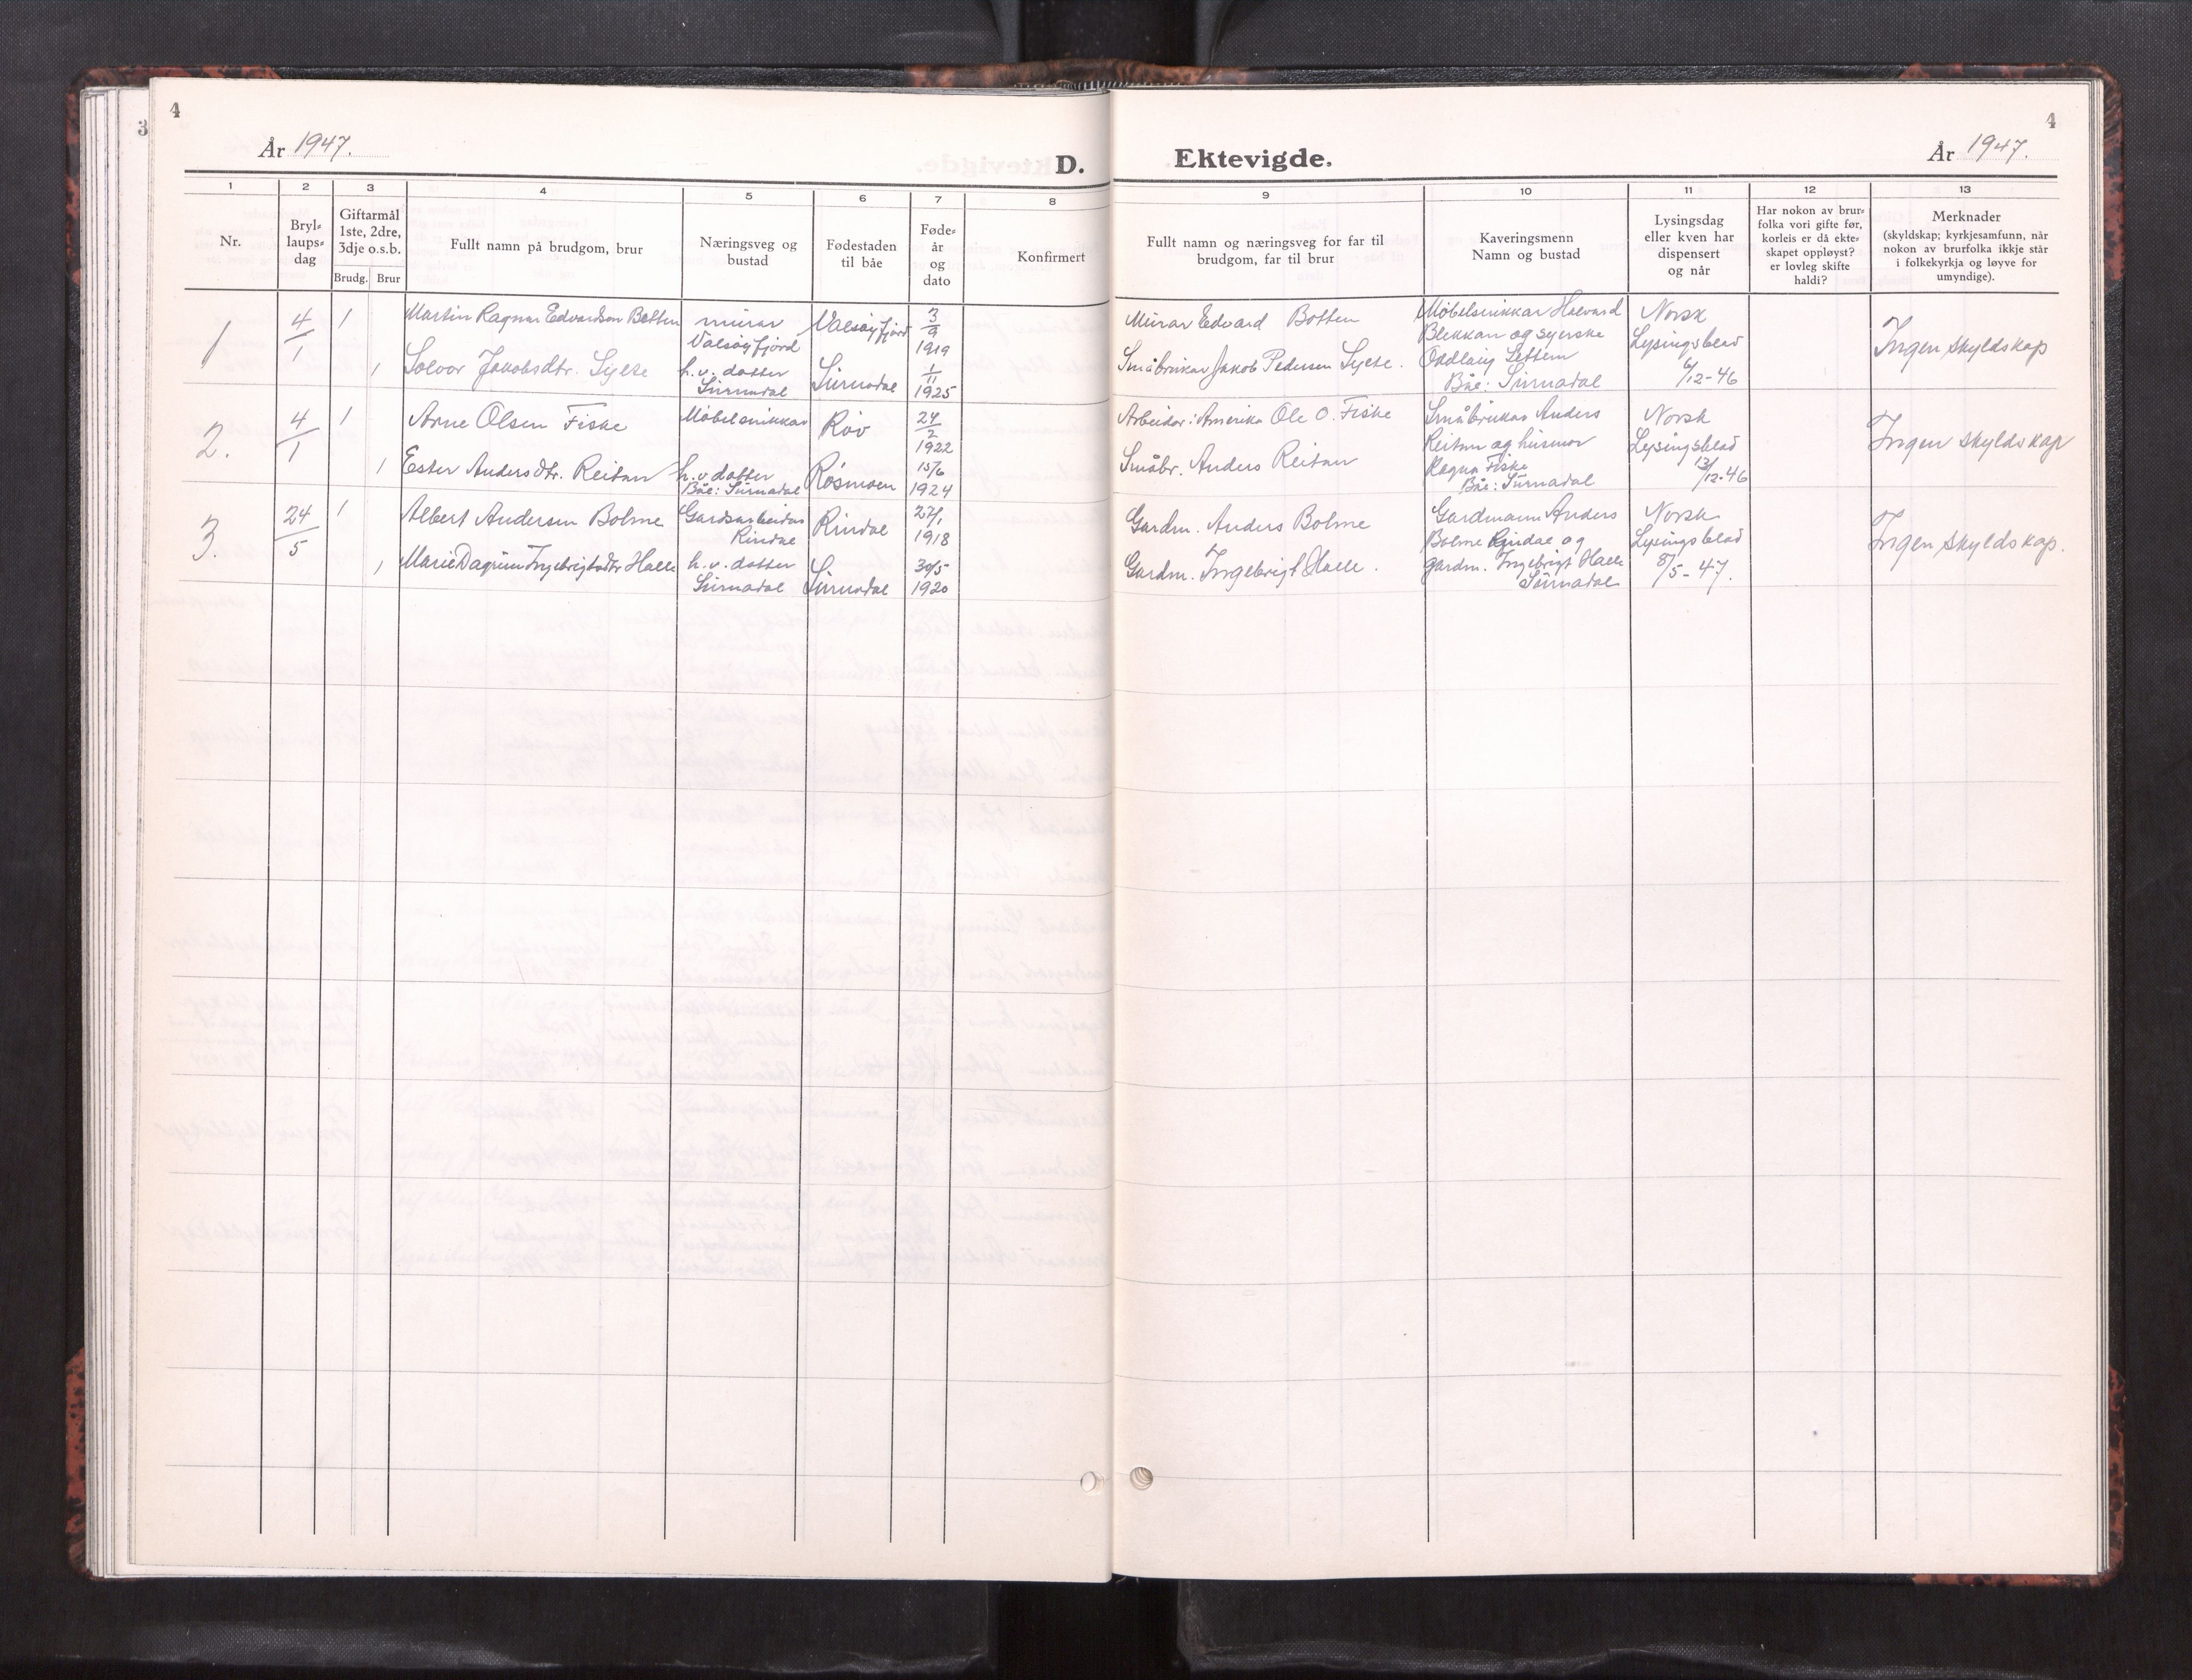 4
3
År 1947.
D.
1
2
3
4
5
6
7
8
Nr.
Bryl-
laups-
dag
Giftarmål
1ste, 2dre,
3dje o.s.b.
Brudg.
Brur
Fullt namn på brudgom, brur
Næringsveg og
bustad
Fødestaden
til båe
Føde-
år
og
dato
Konfirmert
1
4/1
1
Martin Ragnar Edvardsen Botten
murar
Valsøyfjord
Valsøyfjord
3/9
1919
1
Solvor Jakobsdtr. Sylte
h.v. dotter
Surnadal
Surnadal
1/11
1925
2.
4/1
1
Arne Olsen Fiske
Møbelsnikkar
Røv
24/2
1922
1
Ester Andersdtr. Reitan
h.v. dotter
Båe: Surnadal
Røsmoen
15/6
1924
3.
24/5
1
Albert Andersen Bolme
Gardsarbeidar
Rindal
Rindal
27/1
1918
1
Marie Dagrun Ingebrigtsdtr Halle
h.v. dotter
Surnadal
Surnadal
30/5
1920
4
Ektevigde.
År 1947.
9
10
11
12
13
Fullt namn og næringsveg for far til
brudgom, far til brur
Kaveringsmenn
Namn og bustad
Lysingsdag
eller kven har
dispensert
og når
Har nokon av brur-
folka vori gifte før,
korleis er då ekte-
skapet oppløyst?
er lovleg skifte
haldi?
Merknader
(skyldskap; kyrkjesamfunn, når
nokon av brurfolka ikkje står
i folkekyrkja og løyve for
umyndige).
Murar Edvard Botten
Småbrukar Jakob Pedersen Sylte.
Møbelsnikkar Halvard
Blekkan og syerske
Oddlaug Settem
Båe: Surnadal
Norsk
Lysingsblad
6/12-46
Ingen skyldskap
Arbeidar i Amerika Ole O. Fiske
Småbr. Anders Reitan
Småbrukar Anders
Reitan og husmor
Ragna Fiske
Båe: Surnadal
Norsk
Lysingsblad
13/12-46
Ingen skyldskap
Gardm. Anders Bolme
Gardm. Ingebrigt Halle.
Gardmann Anders
Bolme Rindal og
gardm. Ingebrigt Halle
Surnadal
Norsk
Lysingsblad
8/5-47.
Ingen skyldskap.